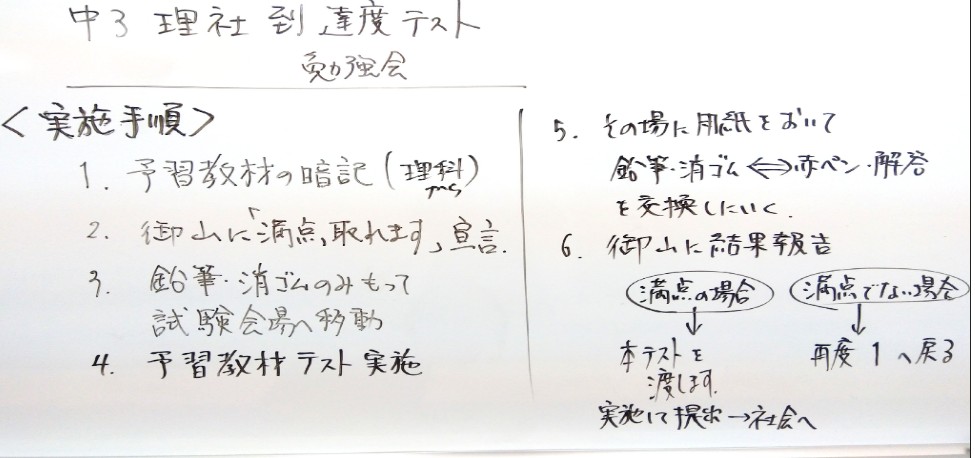 中3 理社 到達度テスト
勉強会
<実施手順>
1. 予習教材の暗記(理科)
2. 御山に「満点取れます」宣言.
3. 鉛筆・消ゴムのみもって
試験会場へ移動
4. 予習教材テスト実施
5. その場に用紙をおいて
鉛筆・消ゴム⇔赤ペン・解答
を交換しにいく.
6. 御山に結果報告
満点の場合
↓
本テストを
渡します.
実施して提出→社会へ
満点でない場合
↓
再度1へ戻る